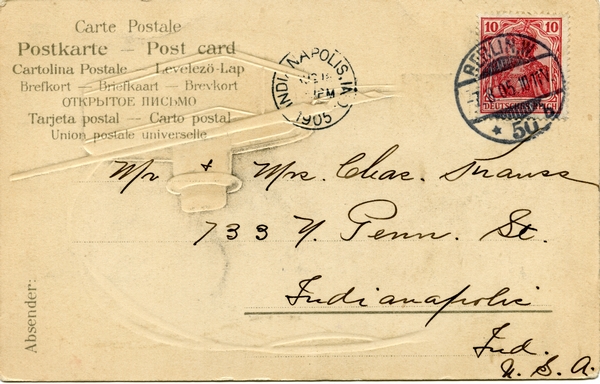 Carte Postale
Postkarte — Post card
Cartolina Postale — Levelező-Lap
Brefkort — Briefkaart — Brevkort
ОТКРЫТОЕ ПИСЬМО
Tarjeta postal — Carto postal
Union postale universelle
INDIANAPOLIS, IA
1905
10 10
DEUTSCHES REICH
BERLIN, W.
* 50
Mr & Mrs. Chas. Strauss
733 N. Penn. St.
Indianapolis
Ind.
U. S. A.
Absender: